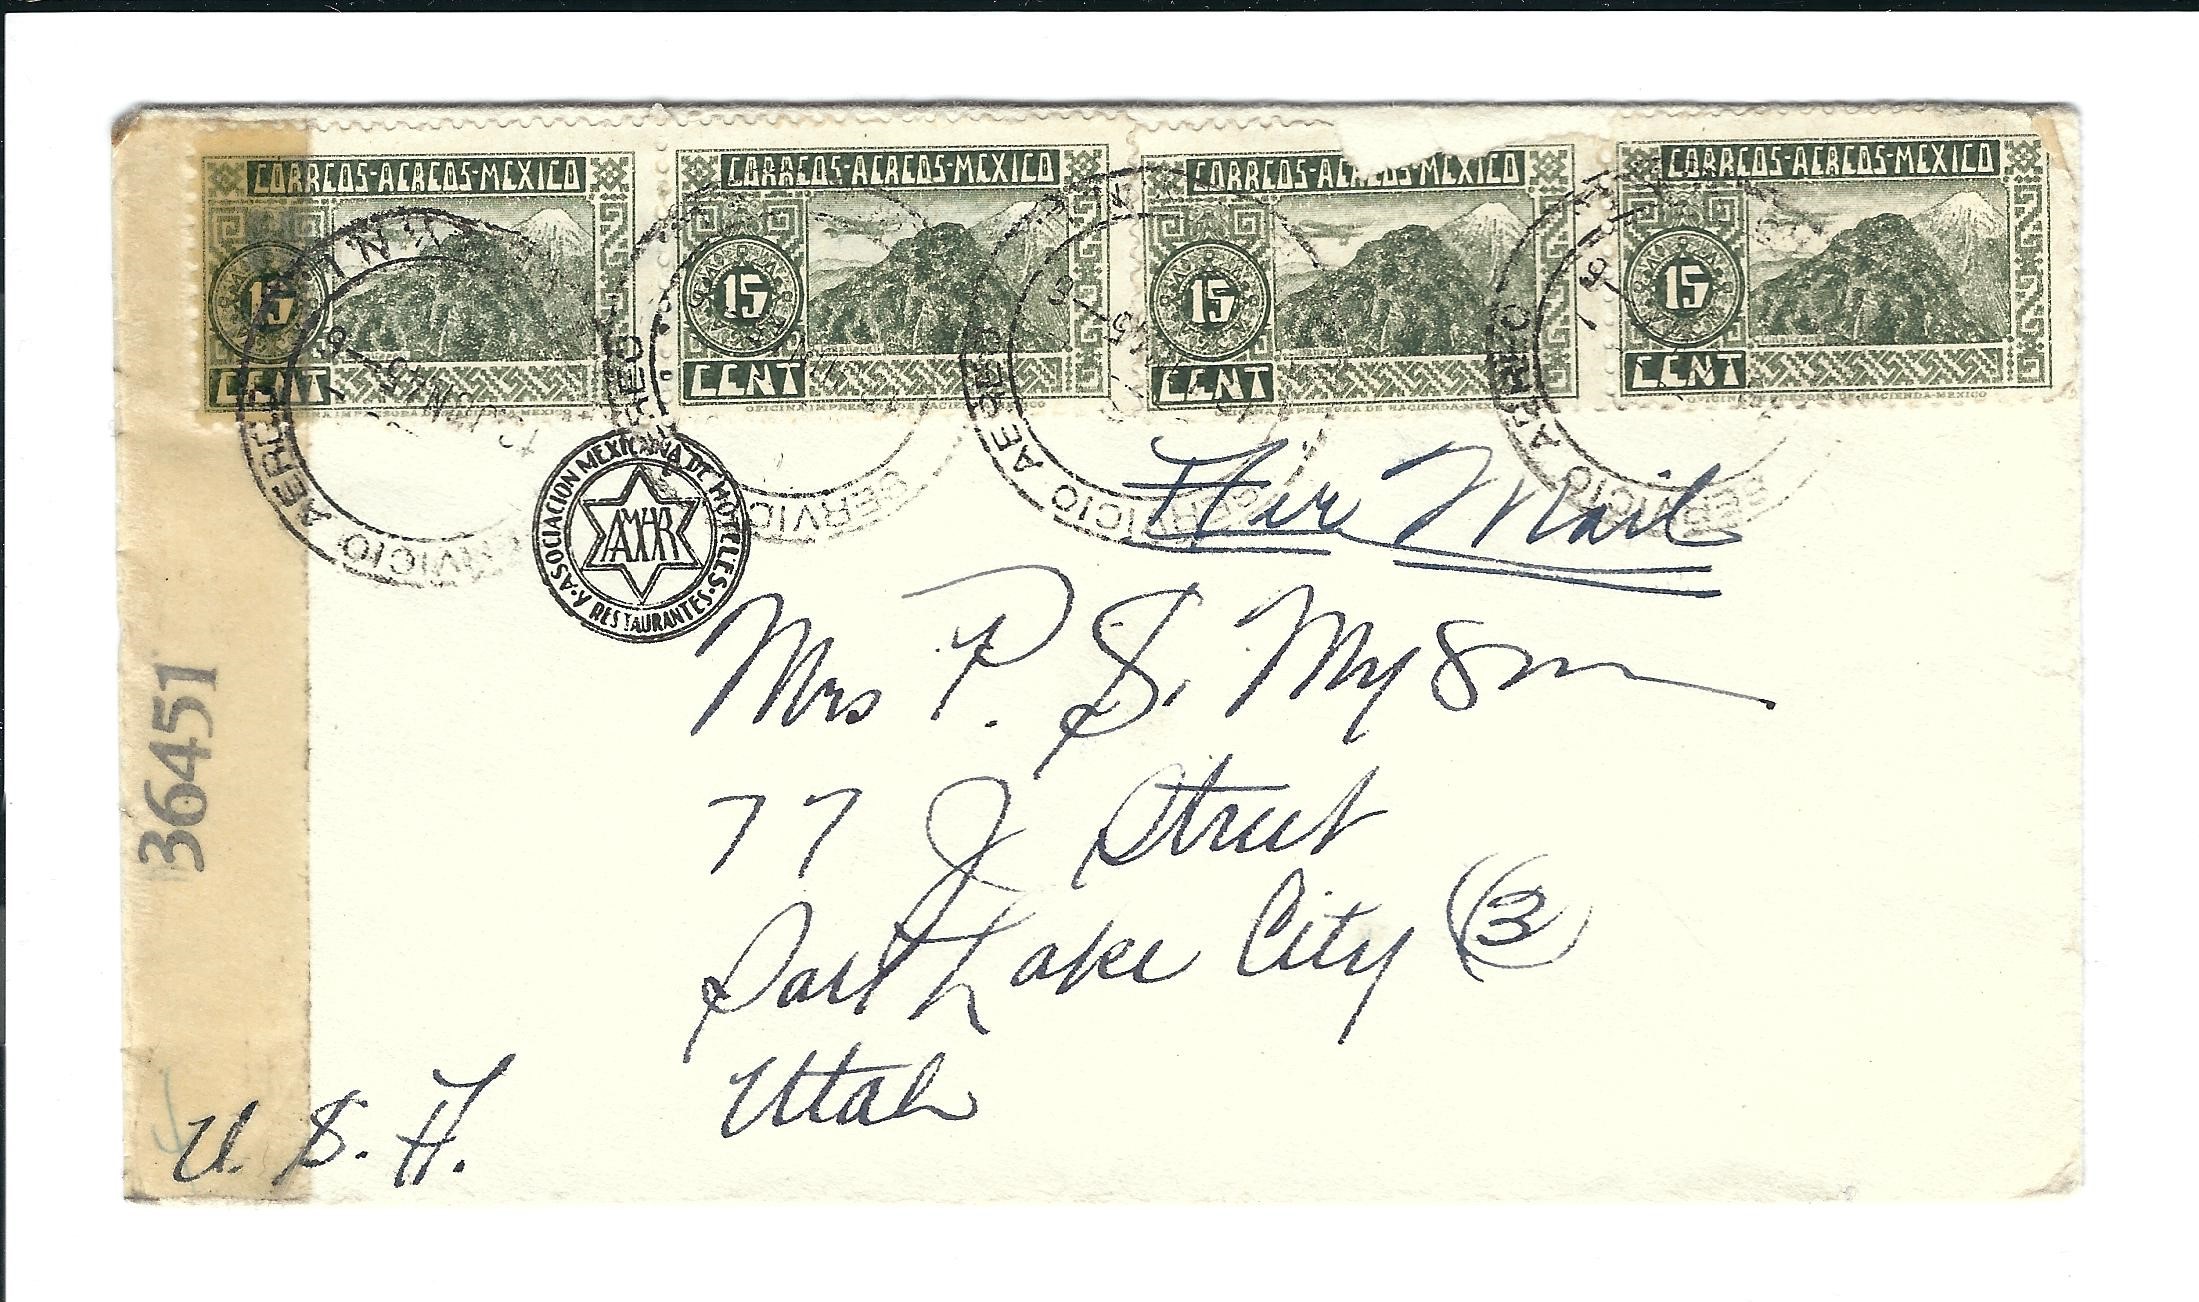 CORREOS-AEREOS-MEXICO
15
CENT
CORREOS-AEREOS-MEXICO
15
CENT
OFICINA IMPRESORA DE HACIENDA-MEXICO
CORREOS-AEREOS-MEXICO
15
CENT
CORREOS-AEREOS-MEXICO
15
CENT
OFICINA IMPRESORA DE HACIENDA-MEXICO
SERVICIO AEREO
SERVICIO AEREO
SERVICIO AEREO
SERVICIO AEREO
ASOCIACION MEXICANA DE HOTELES
Y RESTAURANTES
AMHR
Air Mail
Mrs P. S.
77 J Street
Salt Lake City (3)
Utah
U. S. A.
36451